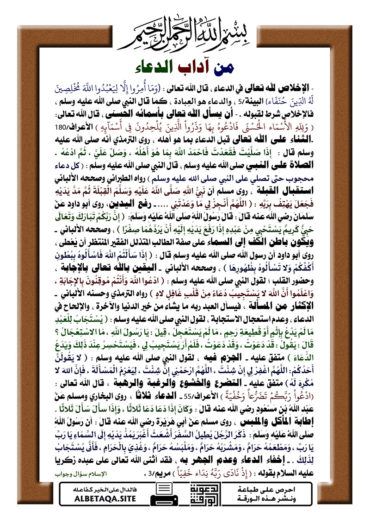 بسم الله الرحمن الرحيم
من آداب الدعاء
- الإخلاص لله تعالى في الدعاء ، قال الله تعالى : (وَمَا أُمِرُوا إِلَّا لِيَعْبُدُوا اللَّهَ مُخْلِصِينَ
لَهُ الدِّينَ حُنَفَاءَ) البينة/5 ، والدعاء هو العبادة ، كما قال النبي صلى الله عليه وسلم ،
فالإخلاص شرط لقبوله . - أن يسأل الله تعالى بأسمائه الحسنى ، قال الله تعالى:
( وَلِلَّهِ الْأَسْمَاء الْحُسْنَى فَادْعُوهُ بِهَا وَذَرُوا الَّذِينَ يُلْحِدُونَ فِي أَسْمَآئِهِ ) الأعراف/180
.الثناء على الله تعالى قبل الدعاء بما هو أهله . روى الترمذي أنه صلى الله عليه
وسلم قال : إِذَا صَلَّيْتَ فَقَعَدْتَ فَاحْمَدْ اللَّهَ بِمَا هُوَ أَهْلُهُ ، وَصَلِّ عَلَيَّ ، ثُمَّ ادْعُهُ -
الصلاة على النبي صلى الله عليه وسلم . قال النبي صلى الله عليه وسلم : ( كل دعاء
محجوب حتى تصلي على النبي صلى الله عليه وسلم ) رواه الطبراني وصححه الألباني
استقبال القبلة . روى مسلم أن نَبِيُّ اللَّهِ صَلَّى اللَّهُ عَلَيْهِ وَسَلَّمَ الْقِبْلَةَ ثُمَّ مَدَّ يَدَيْهِ
فَجَعَلَ يَهْتِفُ بِرَبِّهِ ( اللَّهُمَّ أَنْجِزْ لِي مَا وَعَدْتَنِي .... - رفع اليدين . روى أبو داود عن
سلمان رضي الله عنه قال : قال رسول الله صلى الله عليه وسلم: ( إِنَّ رَبَّكُمْ تَبَارَكَ وَتَعَالَى
حَيِيٌّ كَرِيمٌ يَسْتَحْيِي مِنْ عَبْدِهِ إِذَا رَفَعَ يَدَيْهِ إِلَيْهِ أَنْ يَرُدَّهُمَا صِفْرًا ) ، وصححه الألباني .
ويكون باطن الكف إلى السماء على صفة الطالب المتذلل الفقير المنتظر أن يُعْطَى ،
روى أبو داود أن رسول الله صلى الله عليه وسلم قال : ( إِذَا سَأَلْتُمْ اللَّهَ فَاسْأَلُوهُ بِبُطُونِ
أَكُفِّكُمْ وَلَا تَسْأَلُوهُ بِظُهُورِهَا ) ، وصححه الألباني . - اليقين بالله تعالى بالإجابة ،
وحضور القلب ؛ لقول النبي صلى الله عليه وسلم : ( ادْعُوا اللَّهَ وَأَنْتُمْ مُوقِنُونَ بِالْإِجَابَةِ ،
وَاعْلَمُوا أَنَّ اللَّهَ لَا يَسْتَجِيبُ دُعَاءً مِنْ قَلْبٍ غَافِلٍ لَاهٍ ) رواه الترمذي وحسنه الألباني .
الإكثار من المسألة . فيسأل العبد ربه ما يشاء من خير الدنيا والآخرة ، والإلحاح في
الدعاء ، وعدم استعجال الاستجابة ، لقول النبي صلى الله عليه وسلم : ( يُسْتَجَابُ لِلْعَبْدِ
مَا لَمْ يَدْعُ بِإِثْمٍ أَوْ قَطِيعَةِ رَحِمٍ ، مَا لَمْ يَسْتَعْجِلْ . قِيلَ : يَا رَسُولَ اللَّهِ ، مَا الاسْتِعْجَالُ ؟
قَالَ : يَقُولُ : قَدْ دَعَوْتُ ، وَقَدْ دَعَوْتُ ، فَلَمْ أَرَ يَسْتَجِيبُ لِي ، فَيَسْتَحْسِرُ عِنْدَ ذَلِكَ وَيَدَعُ
الدُّعَاءَ ) متفق عليه - الجزم فيه ، لقول النبي صلى الله عليه وسلم : ( لا يَقُولَنَّ
أَحَدُكُمْ: اللَّهُمَّ اغْفِرْ لِي إِنْ شِئْتَ ، اللَّهُمَّ ارْحَمْنِي إِنْ شِئْتَ ، لِيَعْزِمْ الْمَسْأَلَةَ ، فَإِنَّ اللهَ لا
مُكْرِهَ لَهُ ) متفق عليه - التضرع والخشوع والرغبة والرهبة ، قال الله تعالى :
(ادْعُواْ رَبَّكُمْ تَضَرُّعاً وَخُفْيَةً ) الأعراف/55 . الدعاء ثلاثا ، روى البخاري ومسلم عن
عبد الله بن مسعود رضي الله عنه قال : وَكَانَ إِذَا دَعَا دَعَا ثَلَاثًا ، وَإِذَا سَأَلَ سَأَلَ ثَلَاثًا .
إطابة المأكل والملبس ، روى مسلم عن أبي هريرة رضي الله عنه قال : أن رسول الله
صلى الله عليه وسلم : ذَكَرَ الرَّجُلَ يُطِيلُ السَّفَرَ أَشْعَثَ أَغْبَرَ يَمُدُّ يَدَيْهِ إِلَى السَّمَاءِ يَا رَبِّ
يَا رَبِّ ، وَمَطْعَمُهُ حَرَامٌ ، وَمَشْرَبُهُ حَرَامٌ ، وَمَلْبَسُهُ حَرَامٌ ، وَغُذِيَ بِالْحَرَامِ ، فَأَنَّى يُسْتَجَابُ
لِذَلِكَ . - إخفاء الدعاء وعدم الجهر به ، فقد أثنى الله تعالى على عبده زكريا
عليه السلام بقوله : ( إِذْ نَادَى رَبَّهُ نِدَاء خَفِيّاً ) مريم/3 .
الإسلام سؤال وجواب
احرص على طباعة ونشر هذه الورقة
للدعوية ورقة
فالدال على الخير كفاعله
ALBETAQA.SITE